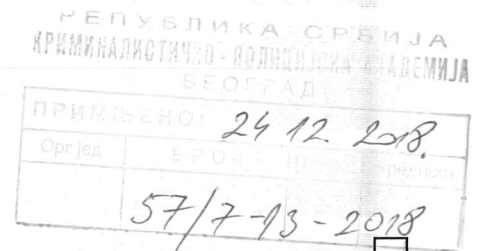 РЕПУБЛИКА СРБИЈА
КРИМИНАЛИСТИЧКО - ПОЛИЦИЈСКА АКАДЕМИЈА
БЕОГРАД
ПРИМЉЕНО: 24 12 2018.
Орг јед БРОЈ
57/7-13-2018